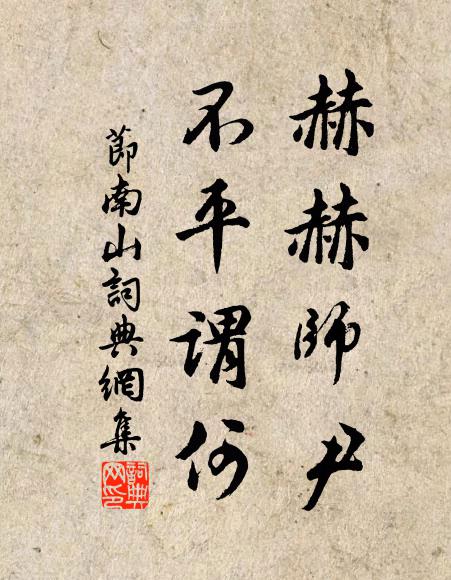 赫赫師尹
不平謂何
節南山詞典網集
詞典网印